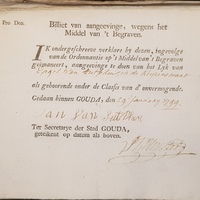 Pro Deo.
Billiet van aangeevinge, wegens het
Middel van 't Begraven.
IK ondergeschreeve verklare by dezen, ingevolge
van de Ordonnantie op 't Middel van 't Begraven
geëmaneert, aangeevinge te doen van het Lyk van
als gehoorende onder de Classis van d'onvermogende.
Gedaan binnen GOUDA, den 29 January 1799
Jan Van Zutphen
Ter Secretarye der Stad GOUDA,
getekent op datum als boven.